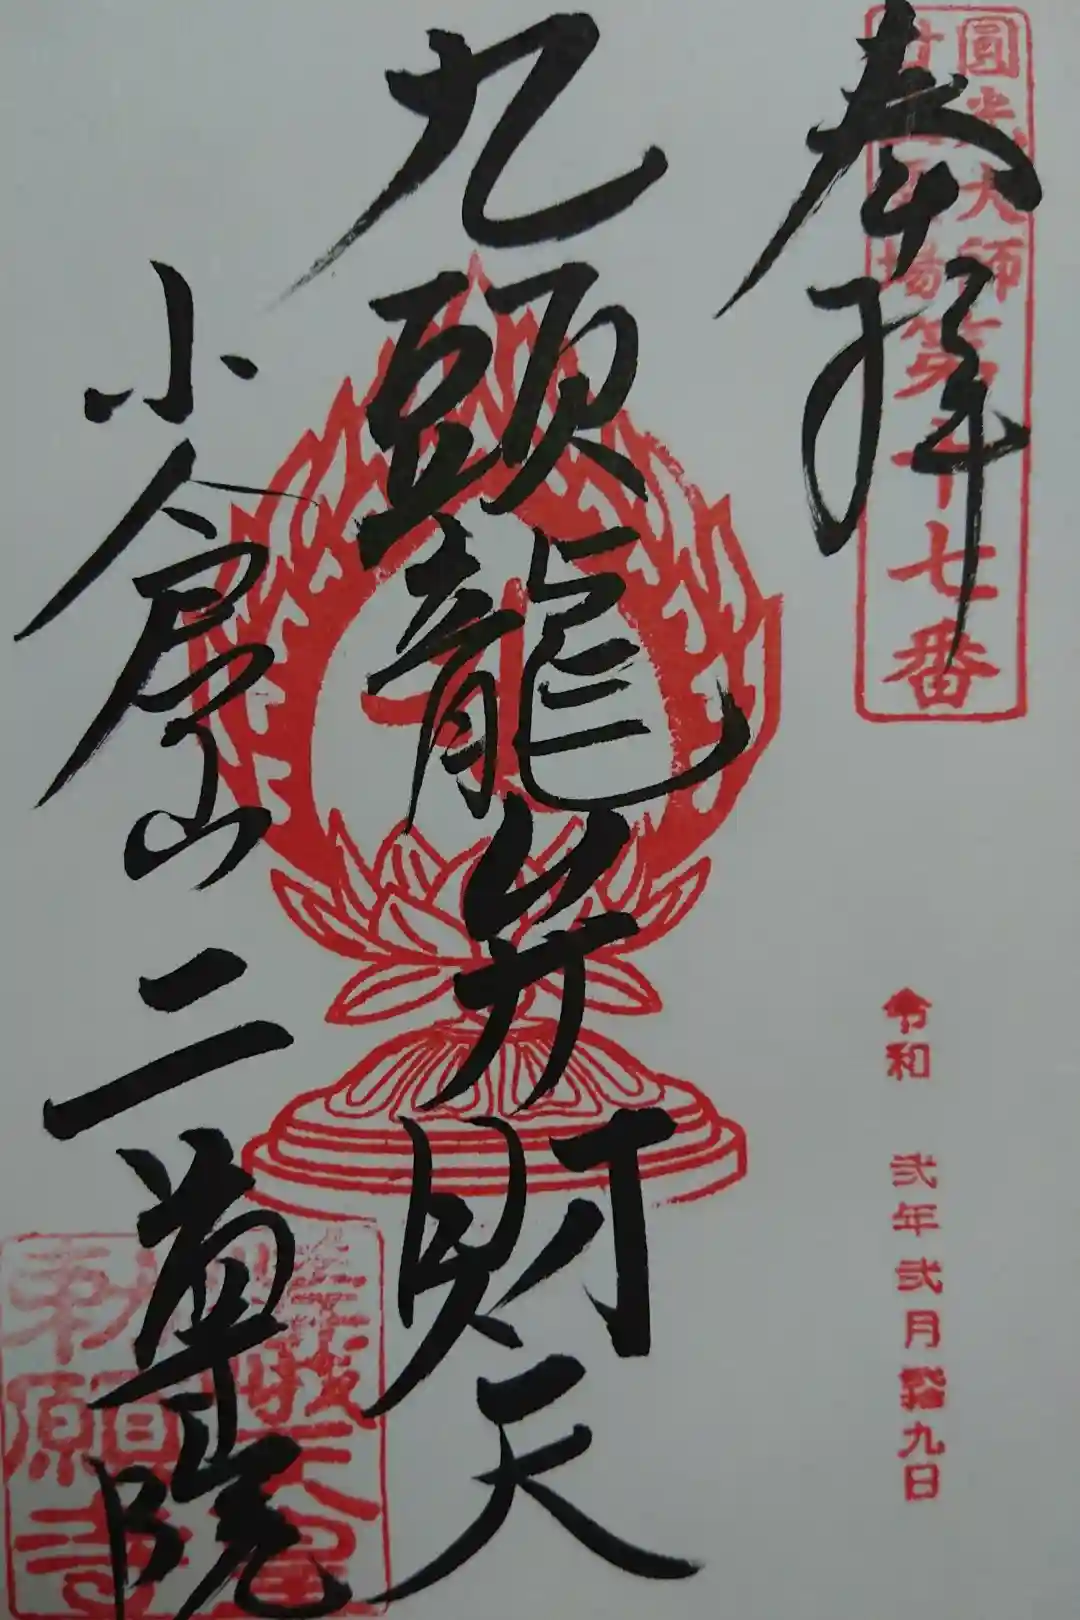 奉拝
圓光大師
廿五霊場第十七番
九頭龍弁財天
小倉山二尊院
令和 弐年弐月 九日
勅願寺